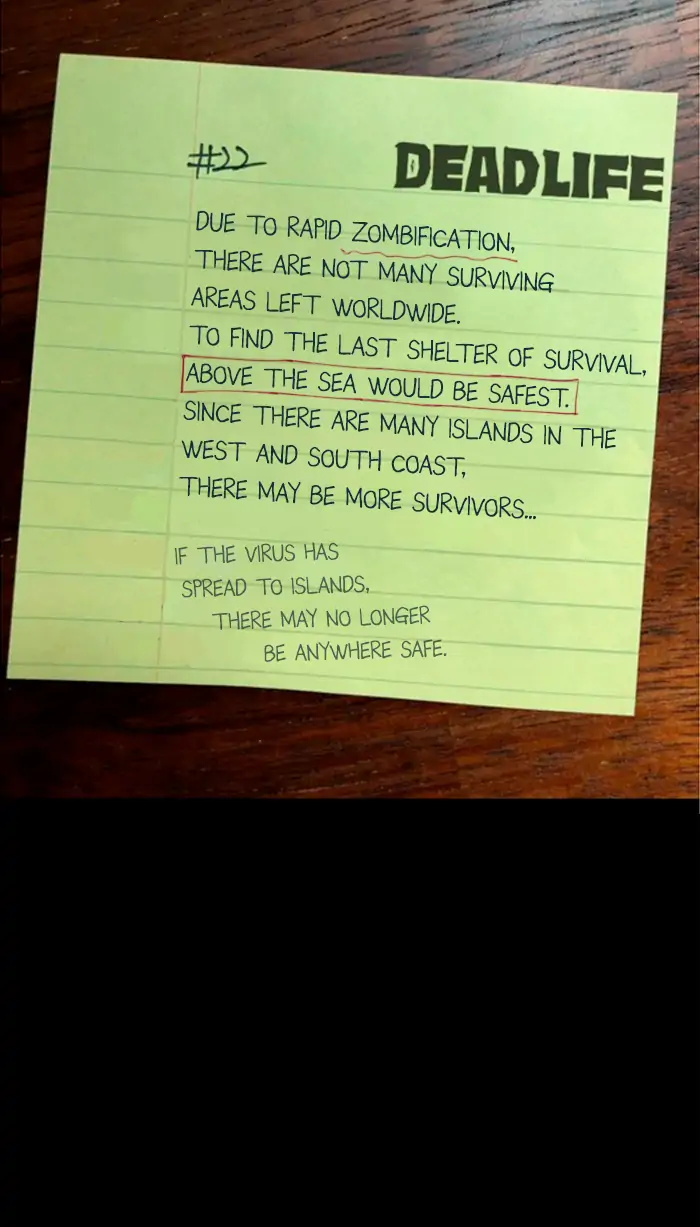 #22
DEADLIFE
DUE TO RAPID ZOMBIFICATION,
THERE ARE NOT MANY SURVIVING
AREAS LEFT WORLDWIDE.
TO FIND THE LAST SHELTER OF SURVIVAL,
ABOVE THE SEA WOULD BE SAFEST.
SINCE THERE ARE MANY ISLANDS IN THE
WEST AND SOUTH COAST,
THERE MAY BE MORE SURVIVORS...
IF THE VIRUS HAS
SPREAD TO ISLANDS,
THERE MAY NO LONGER
BE ANYWHERE SAFE.